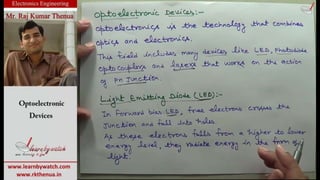 Electronics Engineering
Mr. Raj Kumar Thenua
Optoelectronic
Devices
Learnbywatch
www.learnbywatch.com
www.rkthenua.in
Optoelectronic Devices:-
Optoelectronics is the technology that combines
optics and electronics.
This field includes many devices like LED, Photodiode
Optocouplers and lasers that works on the action
of PN Junction.
Light Emitting Diode (LED):-
In forward bias LED, free electrons crosses the
junction and fall into holes.
As these electrons falls from a higher to lower
energy level, they radiate energy in the form of
light.